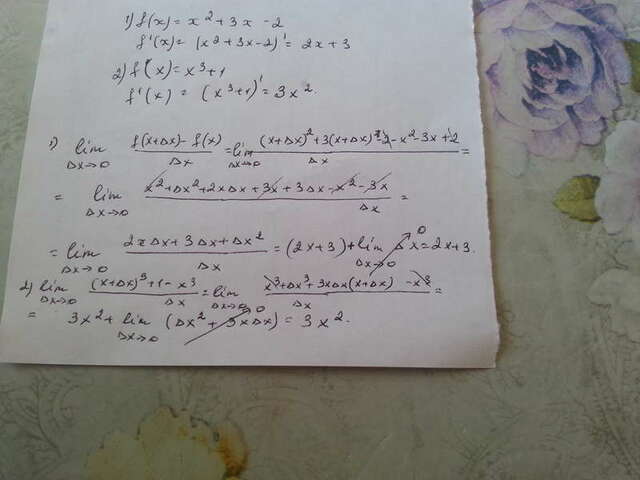 1) f(x) = x² + 3x - 2
f'(x) = (x² + 3x - 2)' = 2x + 3
2) f(x) = x³ + 1
f'(x) = (x³ + 1)' = 3x².
1) lim Δx→0 (f(x+Δx) - f(x))/Δx = lim Δx→0 ((x+Δx)² + 3(x+Δx) - 2 - x² - 3x + 2)/Δx =
= lim Δx→0 (x² + Δx² + 2xΔx + 3x + 3Δx - x² - 3x)/Δx =
= lim Δx→0 (2xΔx + 3Δx + Δx²)/Δx = (2x+3) + lim Δx→0 Δx 0 = 2x + 3.
2) lim Δx→0 ((x+Δx)³ + 1 - x³)/Δx = lim Δx→0 (x³ + Δx³ + 3xΔx(x+Δx) - x³)/Δx =
= 3x² + lim Δx→0 (Δx² + 3xΔx) 0 = 3x².